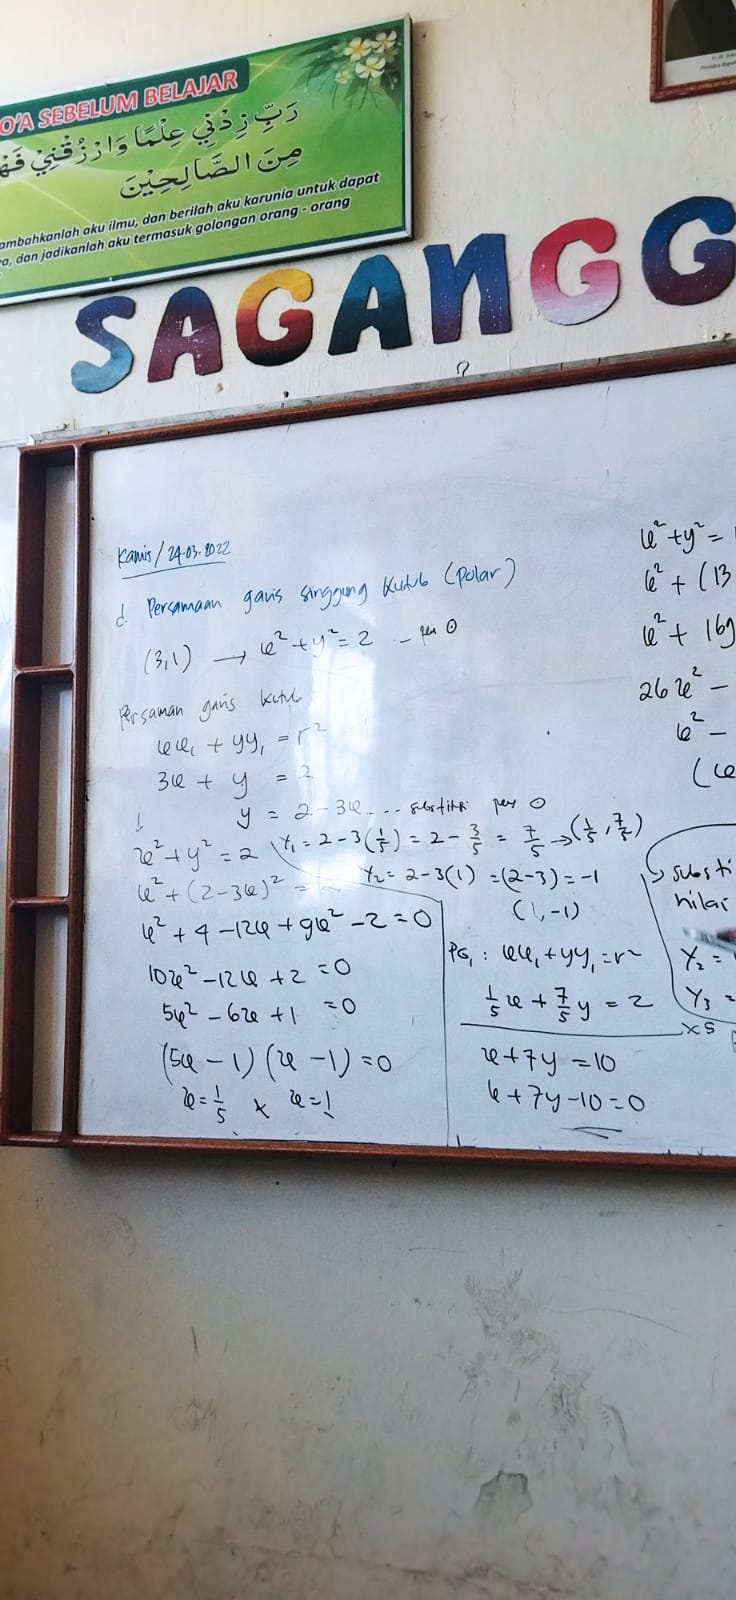 O'A SEBELUM BELAJAR
رَبِّ زِدْنِي عِلْمًا وَارْزُقْنِيْ فَهْ
مِنَ الصَّالِحِيْنَ
ambahkanlah aku ilmu, dan berilah aku karunia untuk dapat
a, dan jadikanlah aku termasuk golongan orang - orang
SAGANGG
Kamis / 24.03.2022
d. Persamaan garis singgung Kutub (Polar)
(3,1) → x² + y² = 2 ... per ⊙
Persaman garis kutub
xx₁ + yy₁ = r²
3x + y = 2
y = 2 - 3x ... substitusi per ⊙
x² + y² = 2
x² + (2-3x)² = 2
x² + 4 - 12x + 9x² - 2 = 0
10x² - 12x + 2 = 0
5x² - 6x + 1 = 0
(5x - 1) (x - 1) = 0
x = 1/5 x x = 1
Y₁ = 2 - 3(1/5) = 2 - 3/5 = 7/5 → (1/5, 7/5)
Y₂ = 2 - 3(1) = (2-3) = -1
(1, -1)
PG₁ : xx₁ + yy₁ = r²
1/5 x + 7/5 y = 2
x5
x + 7y = 10
x + 7y - 10 = 0
x² + y² =
x² + (13
x² + 169
26x² -
x² -
(x
substi
nilai
Y₂ =
Y₃ =